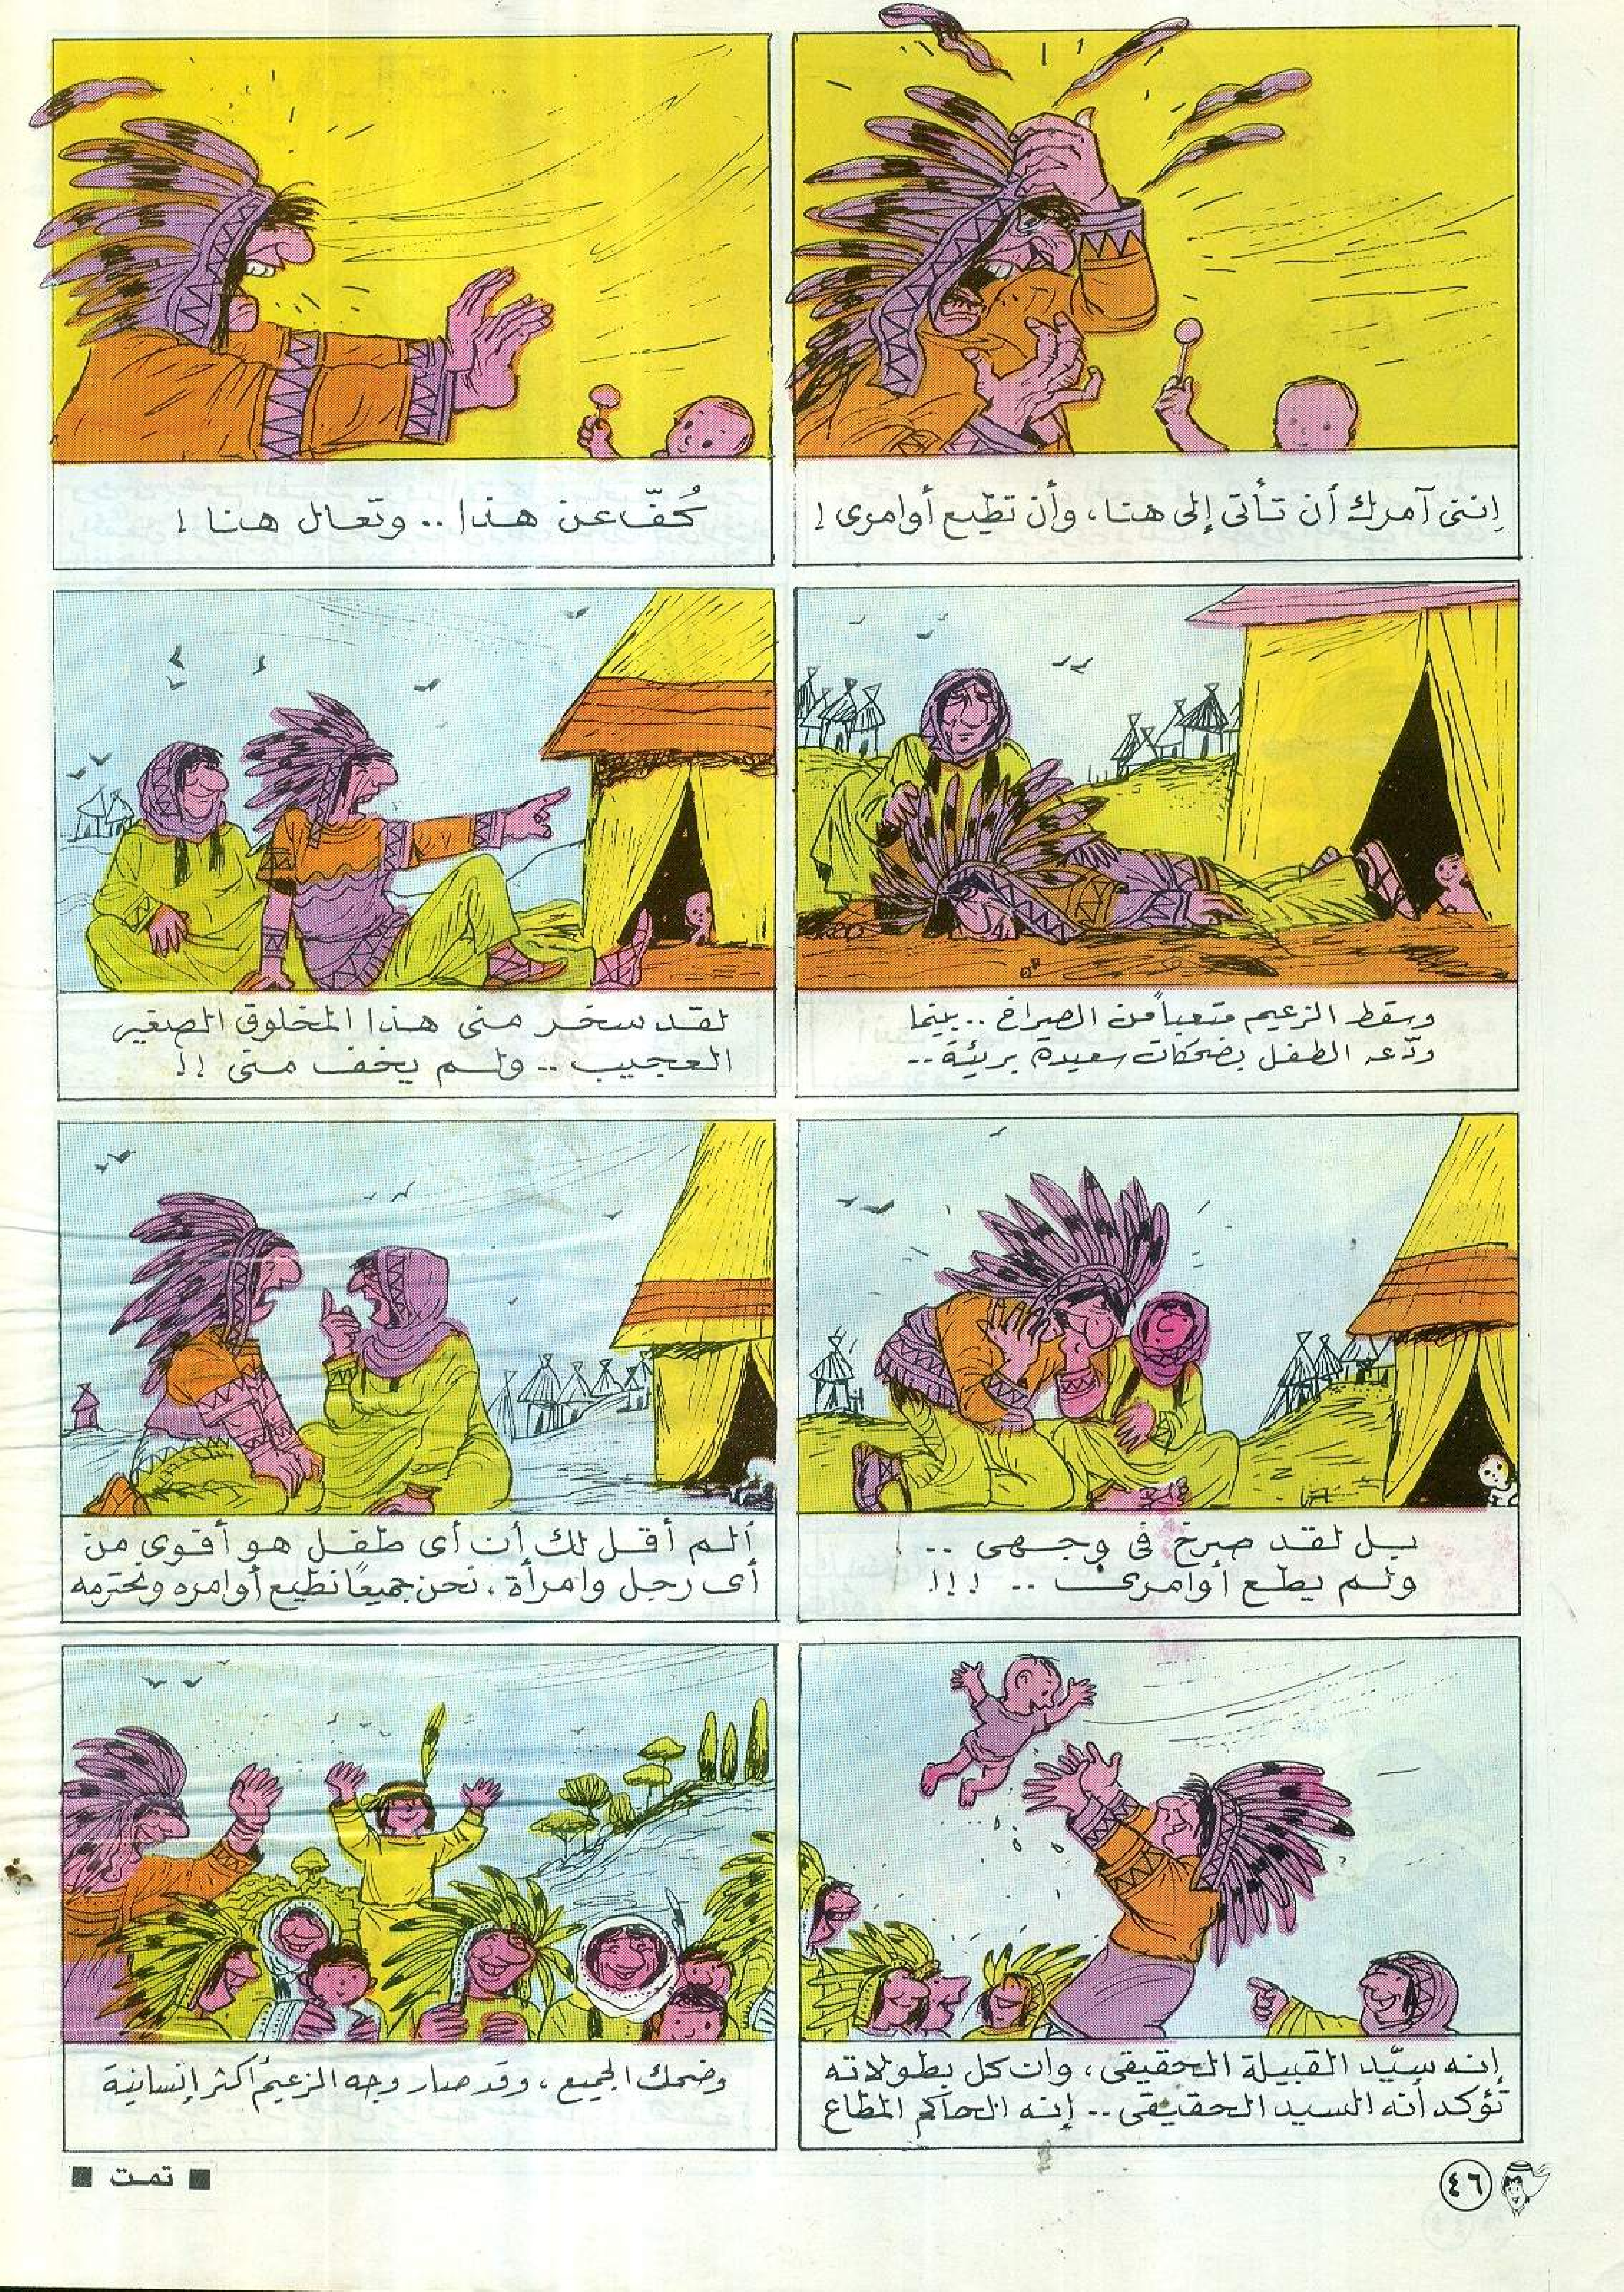 إننى آمرك أن تأتى إلى هنا، وأن تطيع أوامرى !
كُفّ عن هذا .. وتعال هنا !
وسقط الزعيم متعباً من الصراخ .. بينما
ودّعه الطفل بضحكات سعيدة بريئة ..
لقد سخر منى هذا المخلوق الصغير
العجيب .. ولم يخف منى !!
بل لقد صرخ فى وجهى ..
ولم يطع أوامرى .. !!!
ألم أقل لك أن أى طفل هو أقوى من
أى رجل وامرأة، نحن جميعًا نطيع أوامره ونحترمه
إنه سيّد القبيلة الحقيقى، وان كل بطولاته
تؤكد أنه السيد الحقيقى .. إنه الحاكم المطاع
وضحك الجميع، وقد صار وجه الزعيم أكثر إنسانية
■ تمت ■
٤٦